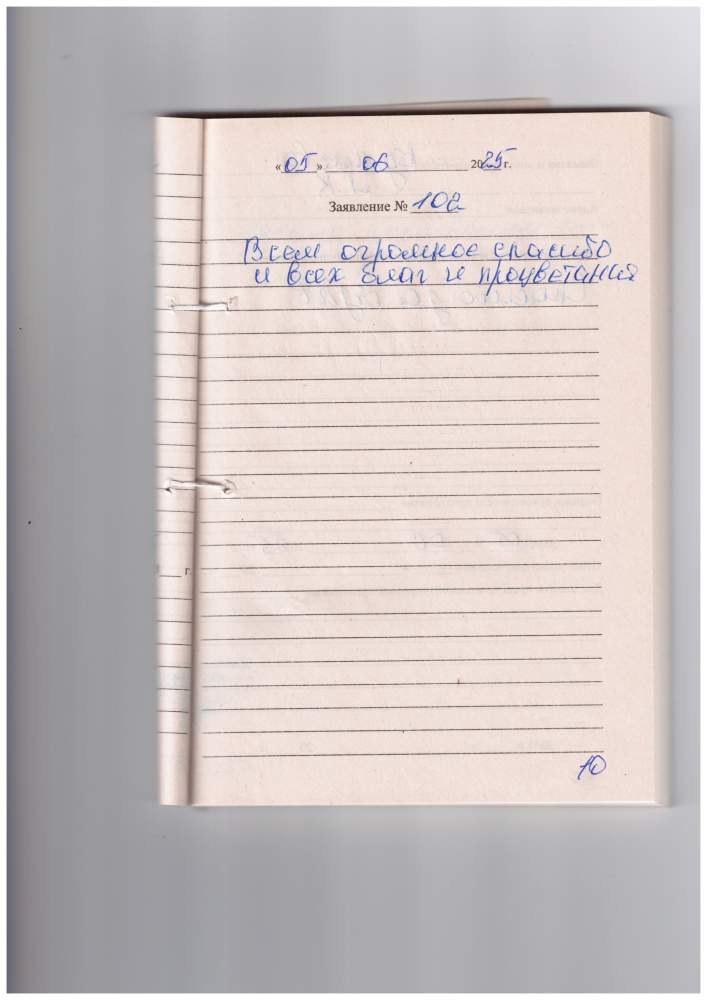 «05» 06 2025 г.
Заявление № 102
Всем огромное спасибо
и всех благ и процветания
г.
10